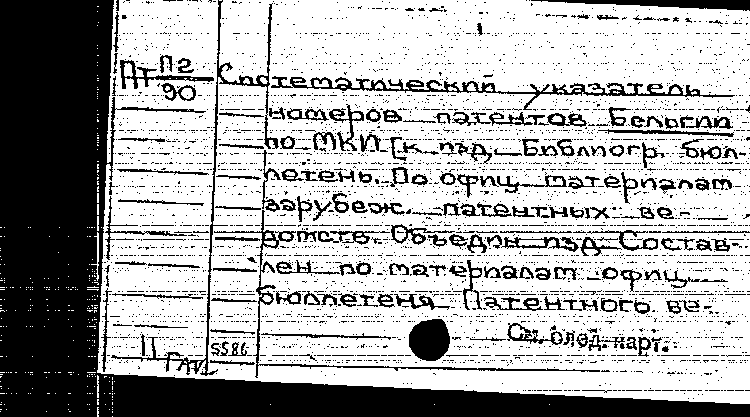 Пт П2 Систематический указатель
90
номеров патентов Бельгии
по МКИ [к изд, Библиогр. бюл-
летень. По офиц. материалам
зарубеж. патентных ве-
домств. Объедин. изд. Состав-
лен по материалам офиц.
бюллетеня Патентного ве-
См. след. карт.
5586